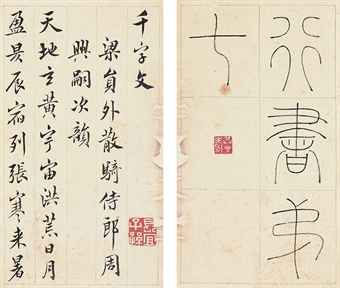 行書弟
七
千字文
梁員外散騎侍郎周
興嗣次韻
天地玄黄宇宙洪荒日月
盈昃辰宿列張寒来暑